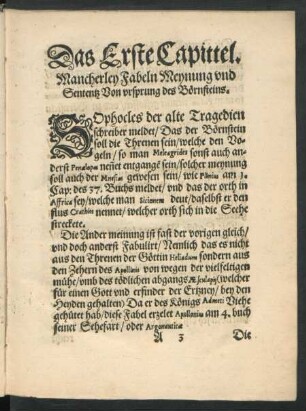 Das Erste Capittel.
Mancherley Fabeln Meynung vnd
Sententz Von vrsprung des Börnsteins.
SOphocles der alte Tragedien
schreiber meldet/ Das der Börnstein
soll die Threnen sein/ welche den Vo-
geln/ so man Meleagrides sonst auch an-
derst Penelopas nennt entgangē sein/ solcher meynung
soll auch der Mnesias gewesen sein/ wie Plinius am 3.
Cap: des 37. Buchs meldet/ vnd das der orth in
Affrica sey/ welche man Sicionem deut/ daselbst er den
flus Crathin nennet/ welcher orth sich in die Sehe
streckete.
Die Ander meinung ist fast der vorigen gleich/
vnd doch anderst Fabulirt/ Nemlich das es nicht
aus den Threnen der Göttin Heliadum sondern aus
den Zehern des Apollinis von wegen der vielfeltigen
mühe/ vnnd des tödlichen abgangs Æsculapij (welcher
für einen Gott vnd erfinder der Ertzney/ bey den
Heyden gehalten) Da er des Königs Admeti Viehe
gehütet hab/ diese Fabel erzelet Apollonius am 4. buch
seiner Schefart/ oder Argonautica
A 3 Die